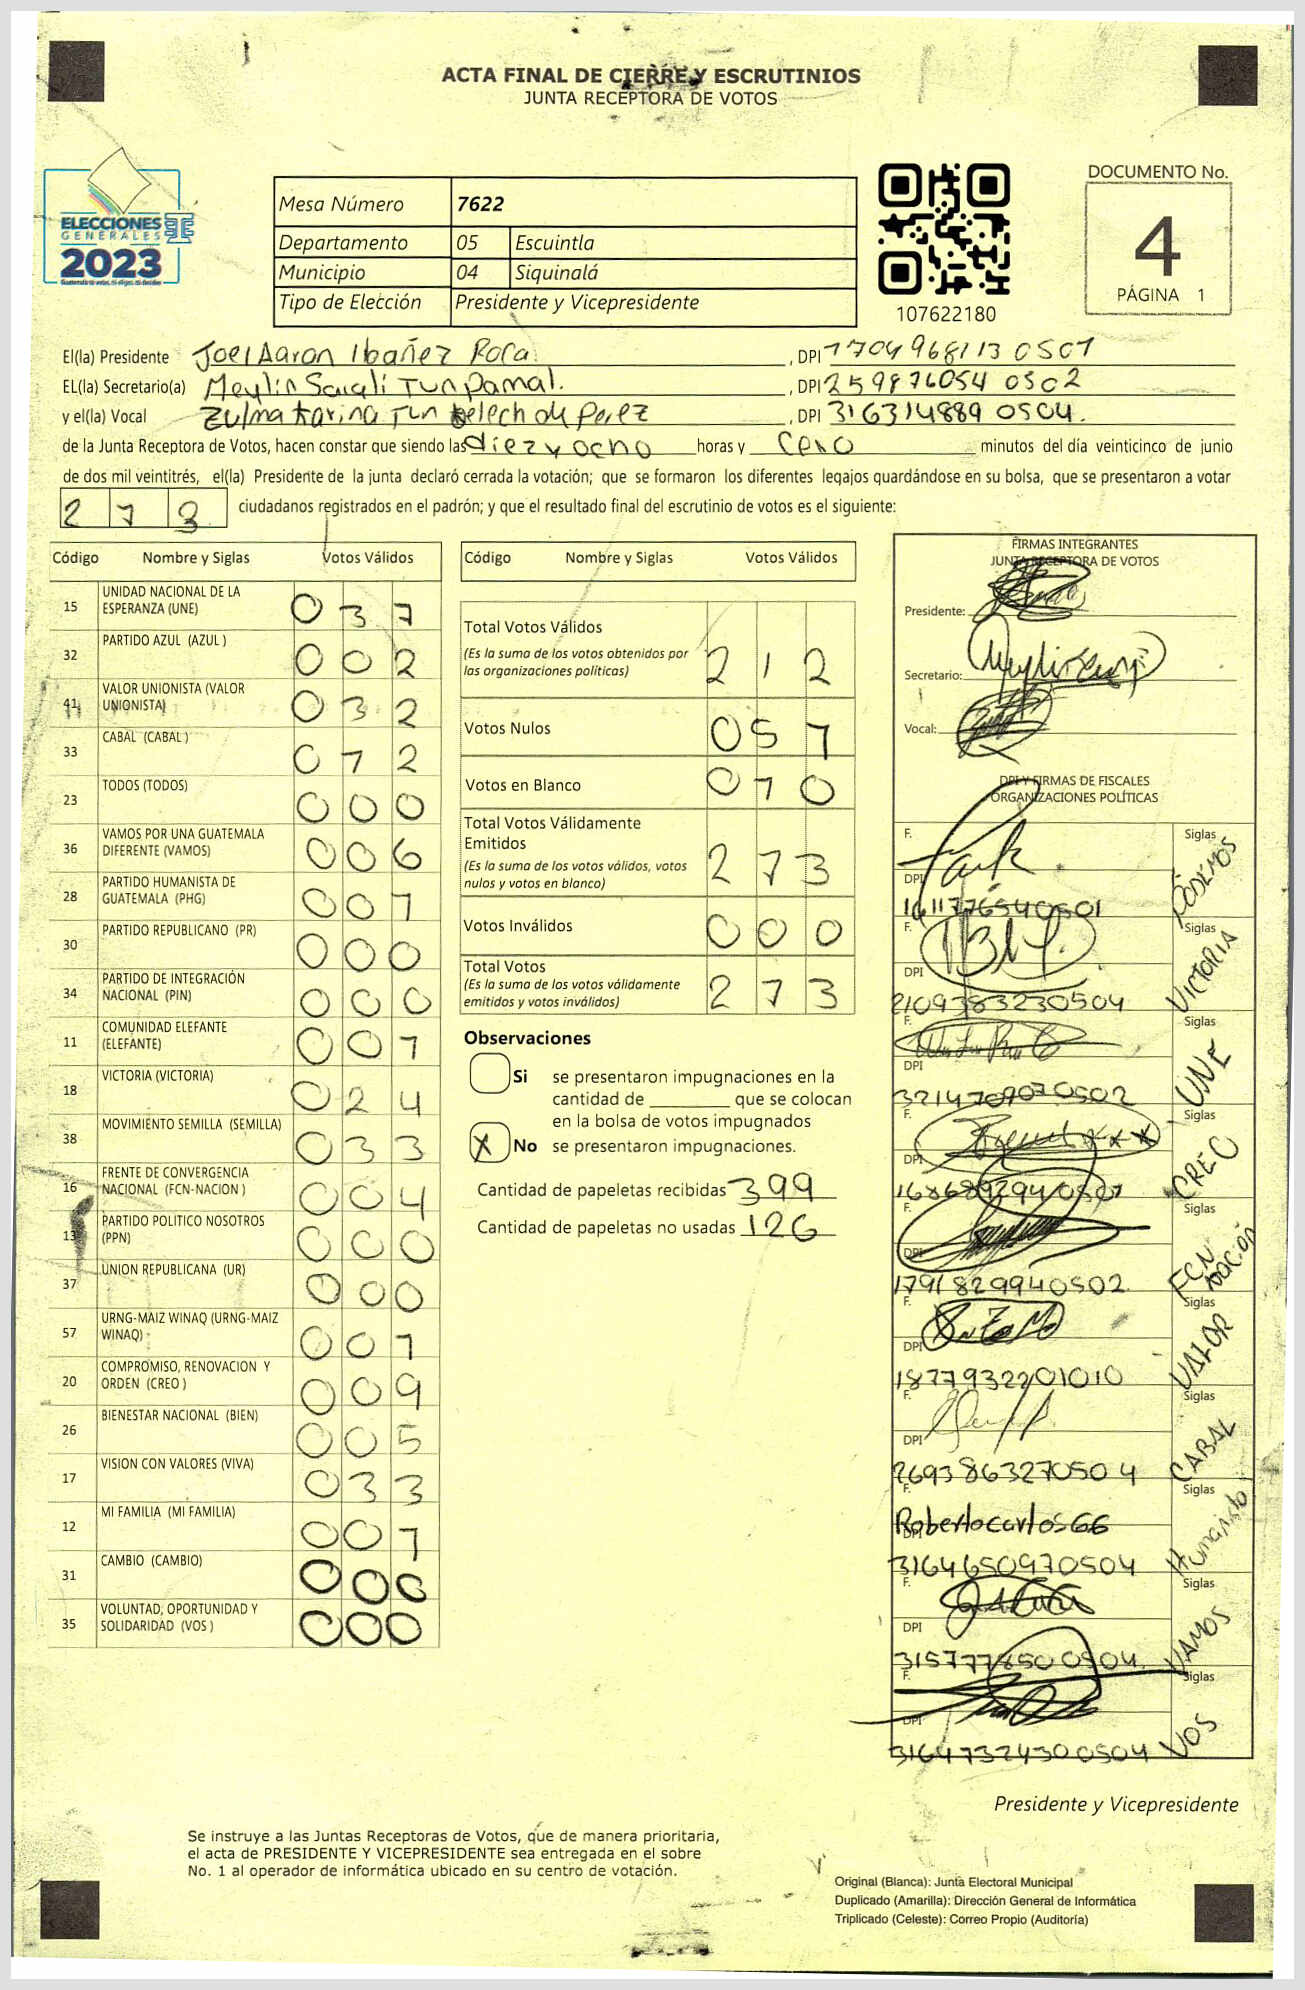 ACTA FINAL DE CIERRE Y ESCRUTINIOS
JUNTA RECEPTORA DE VOTOS
ELECCIONES
GENERALES
2023
Mesa Número 7622
Departamento 05 Escuintla
Municipio 04 Siquinalá
Tipo de Elección Presidente y Vicepresidente
107622180
DOCUMENTO No.
4
PÁGINA 1
El(la) Presidente Joel Aaron Ibañez Roca, DPI 1704968113 0501
EL(la) Secretario(a) Meylin Sarali Tun Pamal., DPI 259876054 0502
y el(la) Vocal Zulma Karina Tun de Perez, DPI 316314889 0504.
de la Junta Receptora de Votos, hacen constar que siendo las diez y ocho horas y cero minutos del día veinticinco de junio
de dos mil veintitrés, el(la) Presidente de la junta declaró cerrada la votación; que se formaron los diferentes legajos guardándose en su bolsa, que se presentaron a votar
273 ciudadanos registrados en el padrón; y que el resultado final del escrutinio de votos es el siguiente:
Código Nombre y Siglas Votos Válidos
15 UNIDAD NACIONAL DE LA ESPERANZA (UNE) 037
32 PARTIDO AZUL (AZUL ) 002
41 VALOR UNIONISTA (VALOR UNIONISTA) 032
33 CABAL (CABAL ) 012
23 TODOS (TODOS) 000
36 VAMOS POR UNA GUATEMALA DIFERENTE (VAMOS) 006
28 PARTIDO HUMANISTA DE GUATEMALA (PHG) 001
30 PARTIDO REPUBLICANO (PR) 000
34 PARTIDO DE INTEGRACIÓN NACIONAL (PIN) 000
11 COMUNIDAD ELEFANTE (ELEFANTE) 001
18 VICTORIA (VICTORIA) 024
38 MOVIMIENTO SEMILLA (SEMILLA) 033
16 FRENTE DE CONVERGENCIA NACIONAL (FCN-NACION ) 004
13 PARTIDO POLITICO NOSOTROS (PPN) 000
37 UNION REPUBLICANA (UR) 000
57 URNG-MAIZ WINAQ (URNG-MAIZ WINAQ) 001
20 COMPROMISO, RENOVACION Y ORDEN (CREO ) 009
26 BIENESTAR NACIONAL (BIEN) 005
17 VISION CON VALORES (VIVA) 033
12 MI FAMILIA (MI FAMILIA) 001
31 CAMBIO (CAMBIO) 000
35 VOLUNTAD, OPORTUNIDAD Y SOLIDARIDAD (VOS ) 000
Código Nombre y Siglas Votos Válidos
Total Votos Válidos 212
(Es la suma de los votos obtenidos por
las organizaciones políticas)
Votos Nulos 051
Votos en Blanco 010
Total Votos Válidamente
Emitidos 273
(Es la suma de los votos válidos, votos
nulos y votos en blanco)
Votos Inválidos 000
Total Votos 273
(Es la suma de los votos válidamente
emitidos y votos inválidos)
Observaciones
Si se presentaron impugnaciones en la
cantidad de ________ que se colocan
en la bolsa de votos impugnados
X No se presentaron impugnaciones.
Cantidad de papeletas recibidas 399
Cantidad de papeletas no usadas 126
FIRMAS INTEGRANTES
JUNTA RECEPTORA DE VOTOS
Presidente:
Secretario:
Vocal:
DPI Y FIRMAS DE FISCALES
ORGANIZACIONES POLÍTICAS
F. Siglas PODEMOS
DPI 1611776540501
F. Siglas VICTORIA
DPI 2109383230504
F. Siglas UNE
DPI 3214709070502
F. Siglas CREO
DPI 1686892940501
F. Siglas FCN nación
DPI 1791829940502
F. Siglas VALOR
DPI 1877932201010
F. Siglas CABAL
DPI 2693863270504
F. Robertocarlos66 Siglas Humanista
DPI 3164650970504
F. Siglas VAMOS
DPI 3157778500504
F. Siglas VOS
DPI 31647324300504
Presidente y Vicepresidente
Se instruye a las Juntas Receptoras de Votos, que de manera prioritaria,
el acta de PRESIDENTE Y VICEPRESIDENTE sea entregada en el sobre
No. 1 al operador de informática ubicado en su centro de votación.
Original (Blanca): Junta Electoral Municipal
Duplicado (Amarilla): Dirección General de Informática
Triplicado (Celeste): Correo Propio (Auditoría)